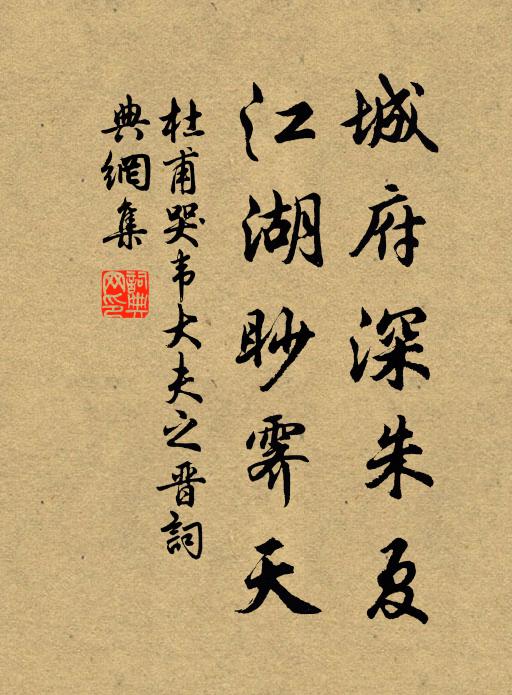 城府深朱夏
江湖眇霁天
杜甫哭韦大夫之晋詞
典網集
詞典网印